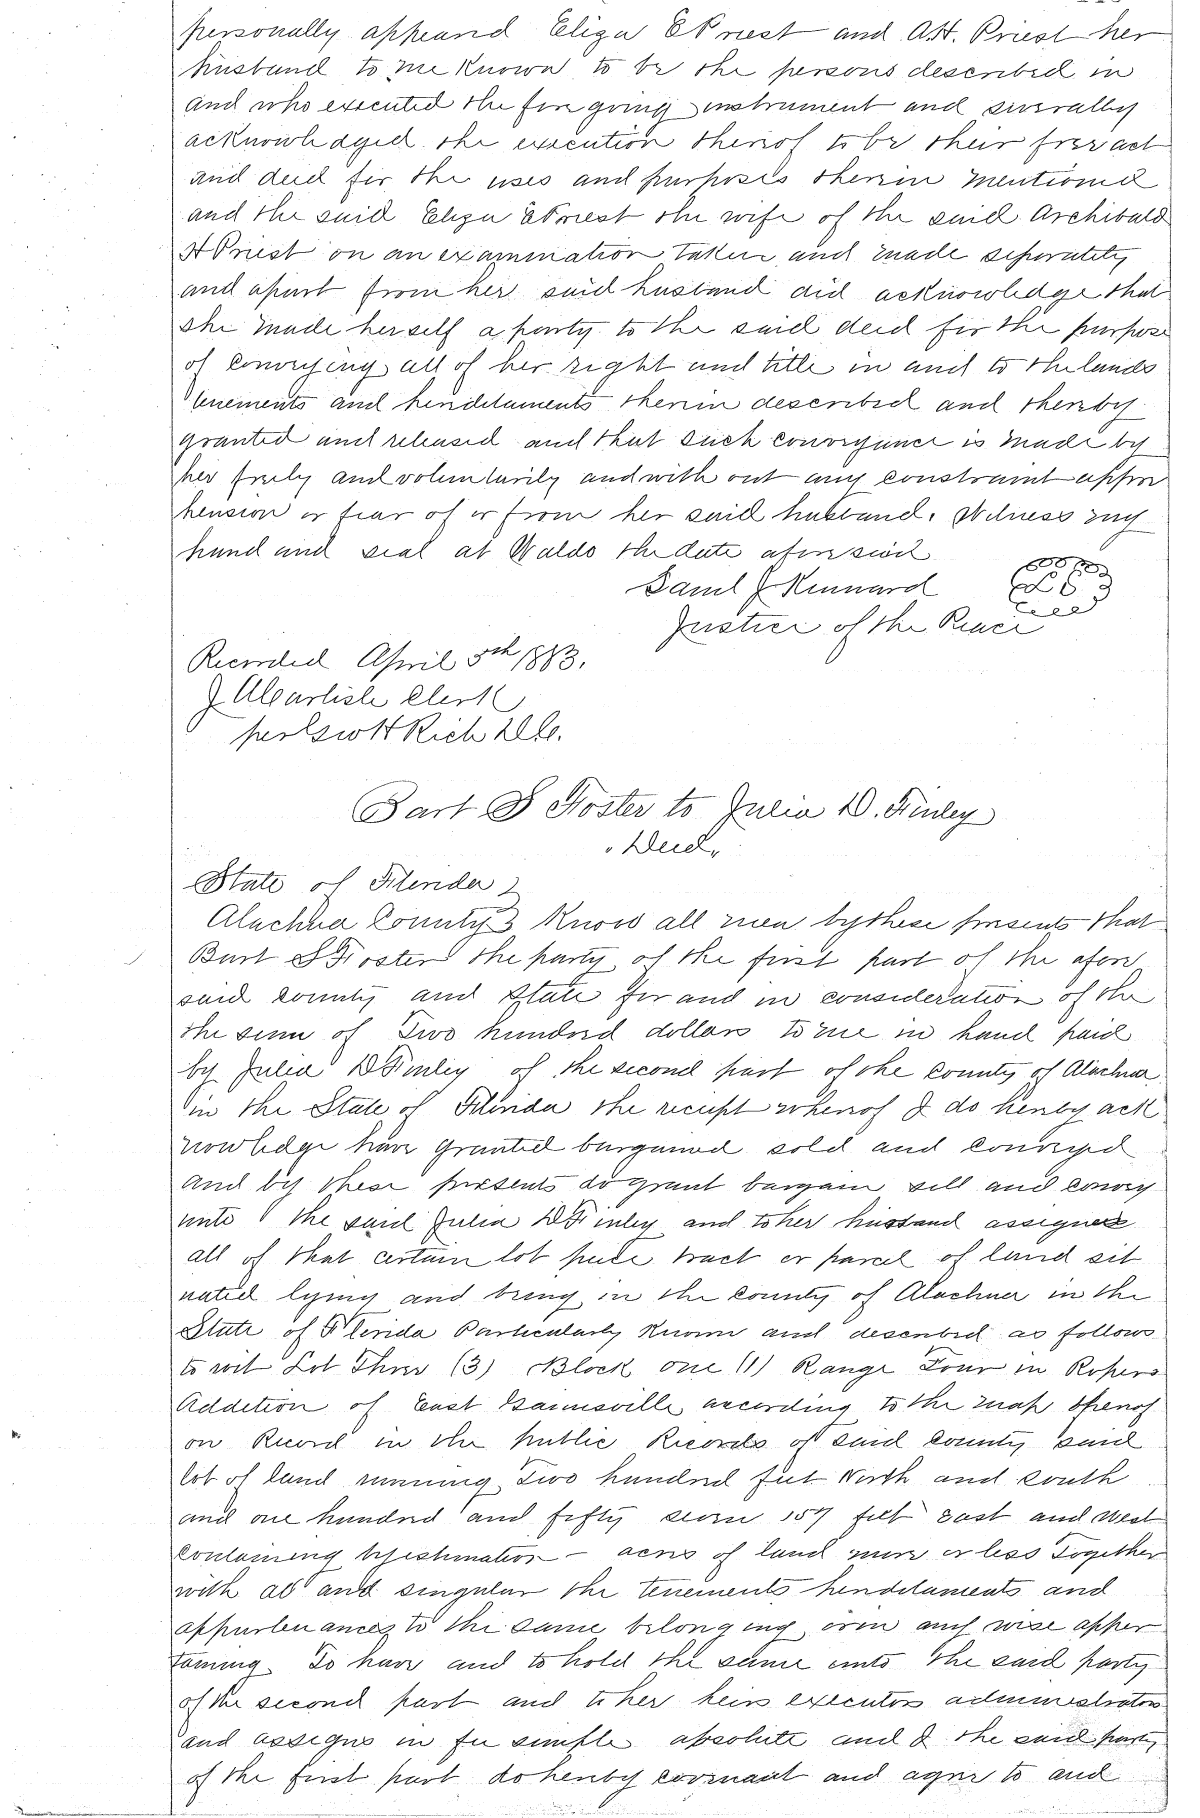 personally appeared Eliza E Priest and A.H. Priest her
husband to me Known to be the persons described in
and who executed the fore going instrument and severally
acknowledged the execution thereof to be their free act
and deed for the uses and purposes therein mentioned
and the said Eliza E Priest the wife of the said Archibald
H Priest on an examination taken and made seperately
and apart from her said husband did acknowledge that
she made herself a party to the said deed for the purpose
of conveying all of her right and title in and to the lands
tenements and hereditaments therein described and thereby
granted and released and that such conveyance is made by
her freely and voluntarily and with out any constraint appre
hension or fear of or from her said husband. Witness my
hand and seal at Waldo the date afore said
Saml J Kennard
Justice of the Peace
Recorded April 5th 1883.
J A Carlisle Clerk
per Scott Rich D.C.
Bart S Foster to Julia D. Finley
"Deed"
State of Florida }
Alachua County } Know all men by these presents that
Bart S Foster the party of the first part of the afore
said county and State for and in consideration of the
the sum of Two hundred dollars to me in hand paid
by Julia D Finley of the second part of the county of Alachua
in the State of Florida the reciept whereof I do hereby ack
nowledge have granted bargained sold and conveyed
and by these presents do grant bargain sell and convey
unto the said Julia D Finley and to her husband assignees
all of that certain lot piece tract or parcel of land sit
uated lying and being in the county of Alachua in the
State of Florida Particularly Known and described as follows
to wit Lot Three (3) Block one (1) Range Four in Ropers
Addition of East Gainesville according to the map thereof
on Record in the public Records of said County said
lot of land running Two hundred feet North and south
and one hundred and fifty seven 157 feet east and west
containing by estimation - acres of land more or less Together
with all and singular the tenements hereditaments and
appurtenances to the same belonging or in any wise apper
taining To have and to hold the same unto the said party
of the second part and to her heirs executors administrators
and assigns in fee simple absolute and I the said party
of the first part do hereby covenant and agree to and